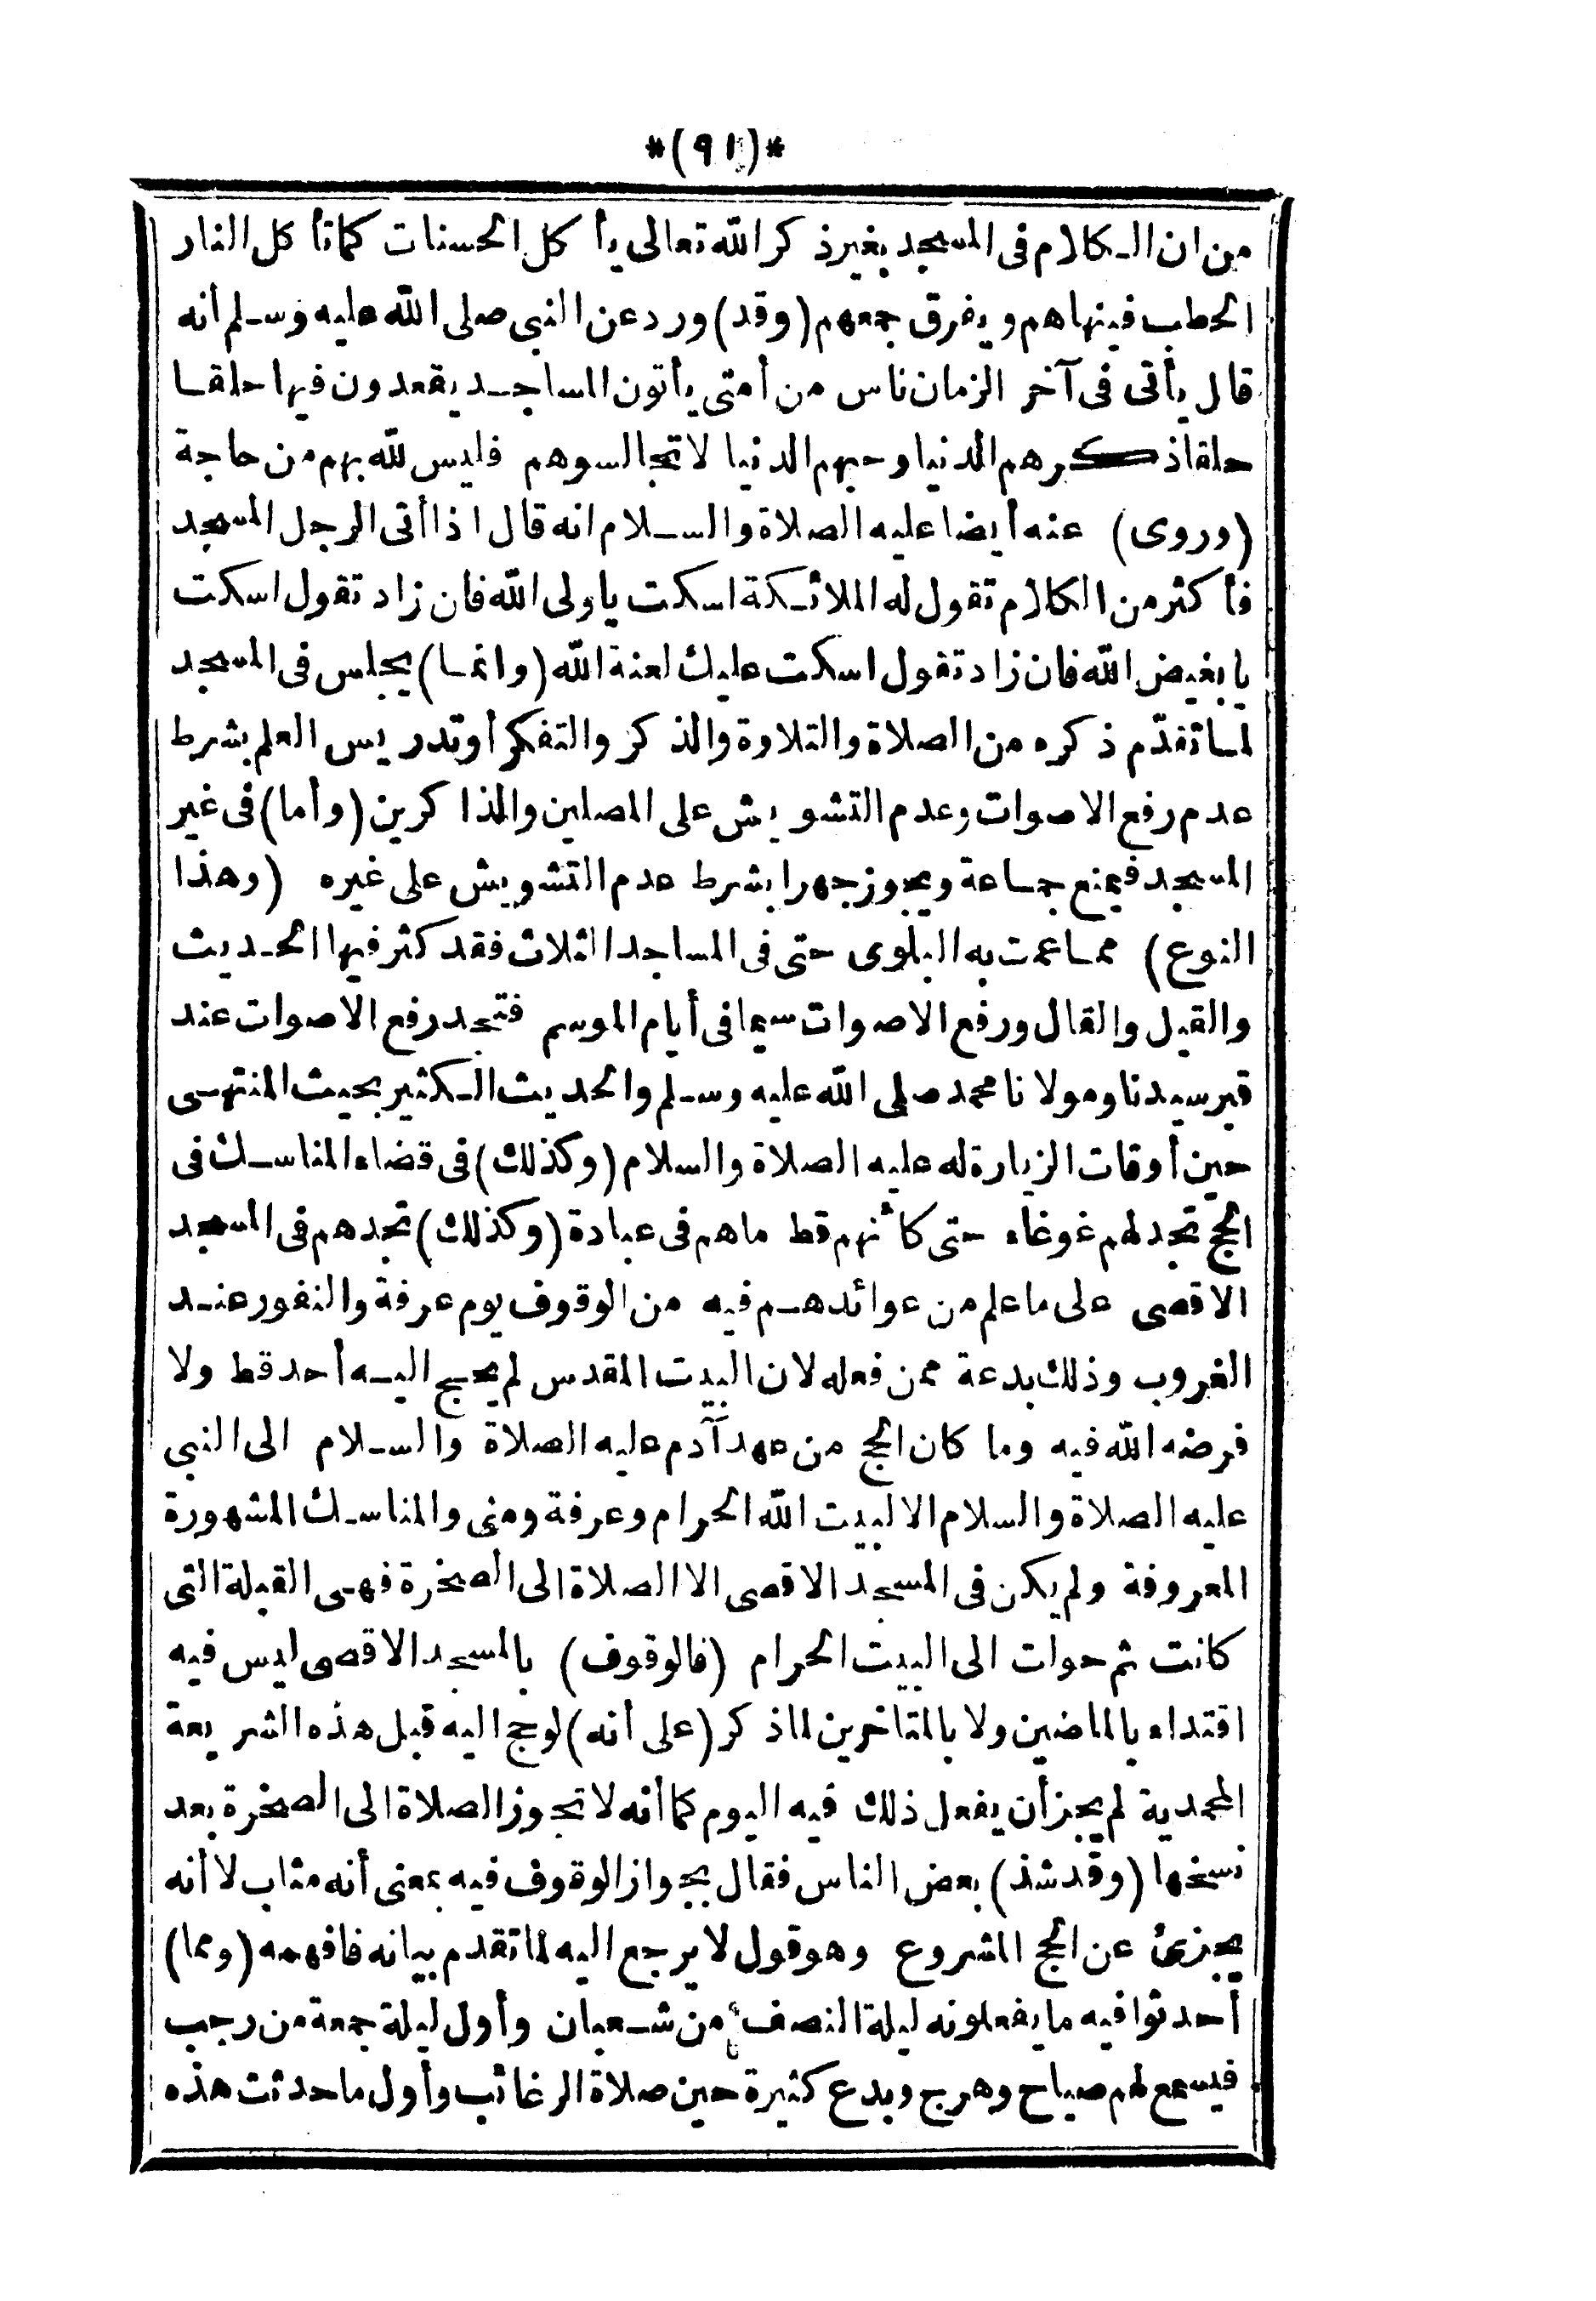 *(٩١)*
من ان الكلام فى المسجد بغير ذكر الله تعالى يأكل الحسنات كما تأكل النار
الحطب فينهاهم ويفرق جمعهم (وقد) ورد عن النبى صلى الله عليه وسلم أنه
قال يأتى فى آخر الزمان ناس من أمتى يأتون المساجد يقعدون فيها حلقا
حلقا ذكرهم الدنيا وحبهم الدنيا لا تجالسوهم فليس لله بهم من حاجة
(وروى) عنه أيضا عليه الصلاة والسلام انه قال اذا أتى الرجل المسجد
فأكثر من الكلام تقول له الملائكة اسكت يا ولى الله فان زاد تقول اسكت
يا بغيض الله فان زاد تقول اسكت عليك لعنة الله (وانما) يجلس فى المسجد
لما تقدّم ذكره من الصلاة والتلاوة والذكر والتفكر أو تدريس العلم بشرط
عدم رفع الاصوات وعدم التشويش على المصلين والذاكرين (وأما) فى غير
المسجد فيمنع جماعة ويجوز جهرا بشرط عدم التشويش على غيره (وهذا
النوع) مما عمت به البلوى حتى فى المساجد الثلاث فقد كثر فيها الحديث
والقيل والقال ورفع الاصوات سيما فى أيام الموسم فتجد رفع الاصوات عند
قبر سيدنا ومولانا محمد صلى الله عليه وسلم والحديث الكثير بحيث المنتهى
حين أوقات الزيارة له عليه الصلاة والسلام (وكذلك) فى قضاء المناسك فى
الحج تجد لهم غوغاء حتى كأنهم قط ما هم فى عبادة (وكذلك) تجدهم فى المسجد
الاقصى على ما علم من عوائدهم فيه من الوقوف يوم عرفة والنفور عند
الغروب وذلك بدعة ممن فعله لان البيت المقدس لم يحج اليه أحد قط ولا
فرضه الله فيه وما كان الحج من عهد آدم عليه الصلاة والسلام الى النبى
عليه الصلاة والسلام الا لبيت الله الحرام وعرفة ومنى والمناسك المشهورة
المعروفة ولم يكن فى المسجد الاقصى الا الصلاة الى الصخرة فهى القبلة التى
كانت ثم حوات الى البيت الحرام (فالوقوف) بالمسجد الاقصى ليس فيه
اقتداء بالماضين ولا بالمتاخرين لما ذكر (على أنه) لو حج اليه قبل هذه الشريعة
المحمدية لم يجز أن يفعل ذلك فيه اليوم كما أنه لا تجوز الصلاة الى الصخرة بعد
نسخها (وقد شذ) بعض الناس فقال بجواز الوقوف فيه بمعنى أنه مثاب لا أنه
يجزئ عن الحج المشروع وهو قول لا يرجع اليه لما تقدم بيانه فافهمه (ومما)
أحدثوا فيه ما يفعلونه ليلة النصف من شعبان وأول ليلة جمعة من رجب
فيسمع لهم صياح وهرج وبدع كثيرة حين صلاة الرغائب وأول ما حدثت هذه